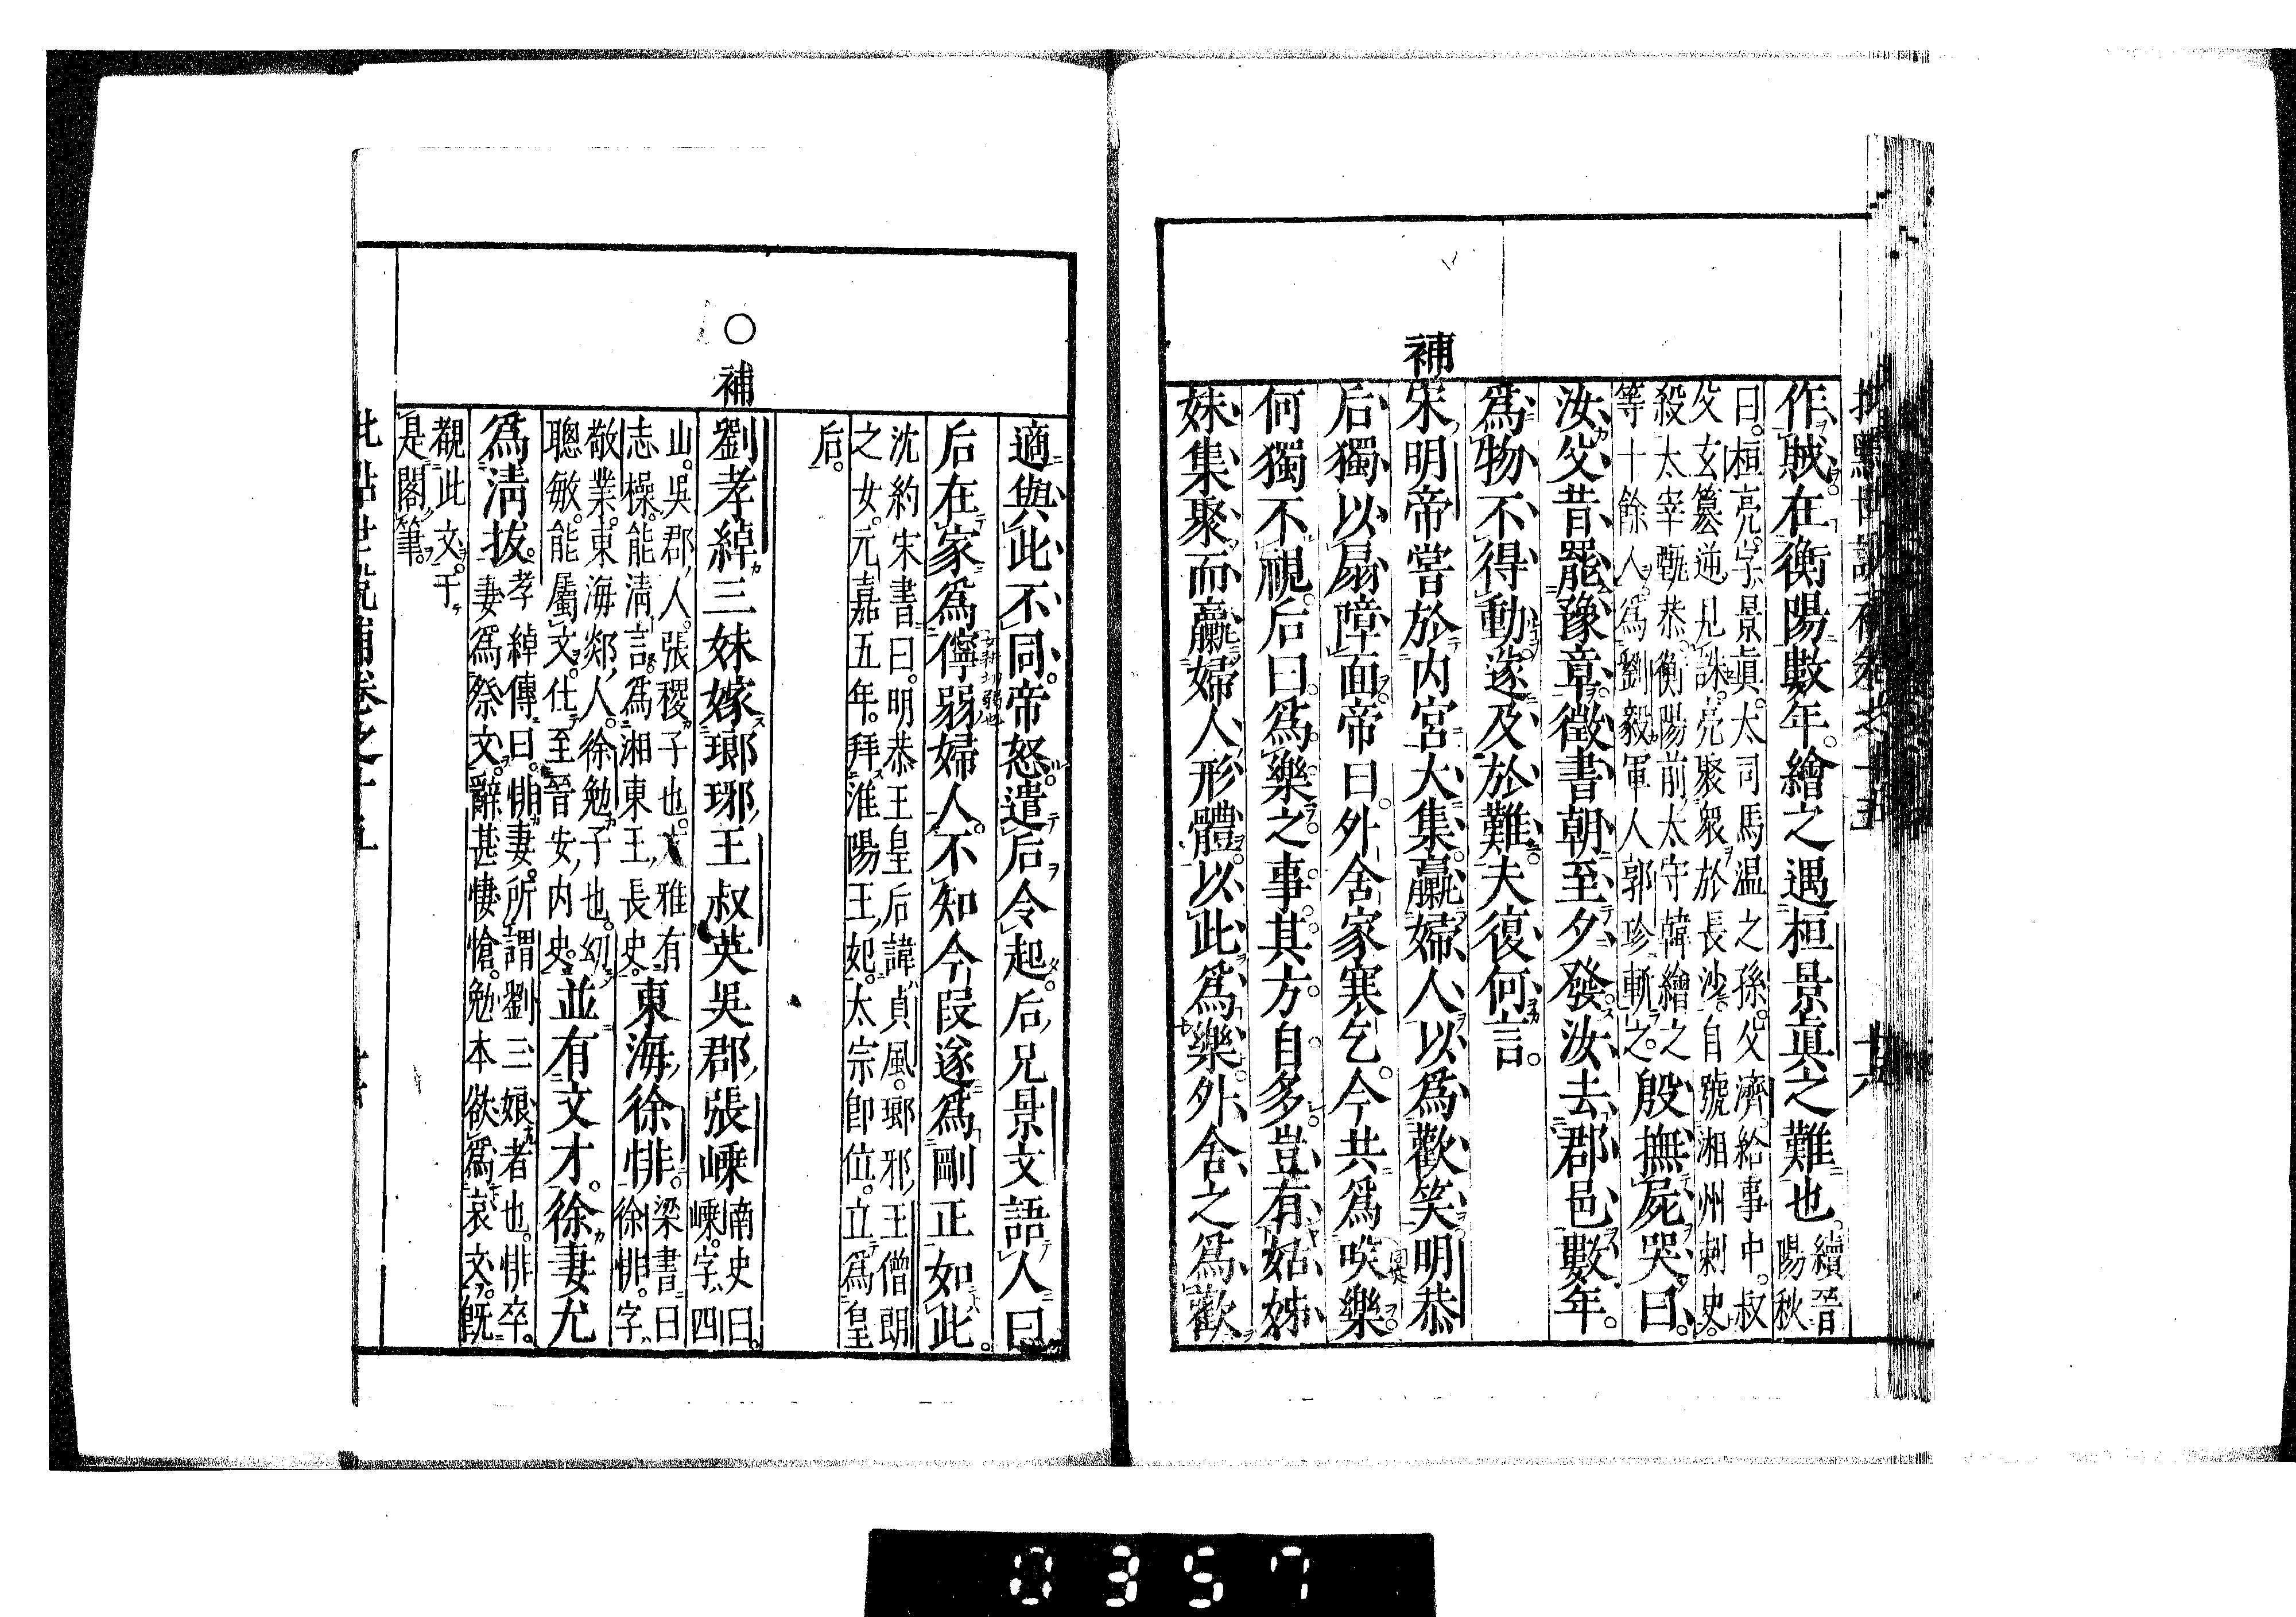 作賊在衡陽數年。繪之遇桓景眞之難也。續晉陽秋
曰。桓亮。字景眞。太司馬温之孫。父濟。給事中。叔
父玄簒逆。見誅。亮聚衆於長沙。自號湘州刺史。
殺太宰甄恭。衡陽前太守韓繪之
等十餘人。爲劉毅軍人郭珍斬之。殷撫屍哭曰。
汝父昔罷豫章。徵書朝至夕發。汝去郡邑數年。
爲物不得動。遂及於難。夫復何言。
補
宋明帝嘗於内宮大集。臝婦人以爲歡笑。明恭
后獨以扇障面。帝曰。外舍家寒乞。今共爲唉樂
何獨不視。后曰。爲樂之事。其方自多。豈有姑姊
妹集聚。而臝婦人形體。以此爲樂。外舍之爲歡
適與此不同。帝怒。遣后令起。后兄景文語人曰
后在家爲儜弱婦人。不知今段遂爲剛正如此。
沈約宋書曰。明恭王皇后諱貞風。瑯邪王僧朗
之女。元嘉五年。拜淮陽王妃。太宗卽位。立爲皇
后。
○補
劉孝綽三妹嫁瑯琊王叔英吳郡張嵊南史曰。嵊。字四
山。吳郡人。張稷子也。雅有
志操。能淸言。爲湘東王長史。東海徐悱。梁書曰徐悱。字
敬業。東海郯人。徐勉子也。幼
聰敏。能屬文。仕至晉安内史。並有文才。徐妻尤
爲淸拔。孝綽傳曰。悱妻。所謂劉三娘者也。悱卒。
妻爲祭文。辭甚悽愴。勉本欲爲哀文。旣
覩此文。于
是閣筆。
批點世説補卷之十五